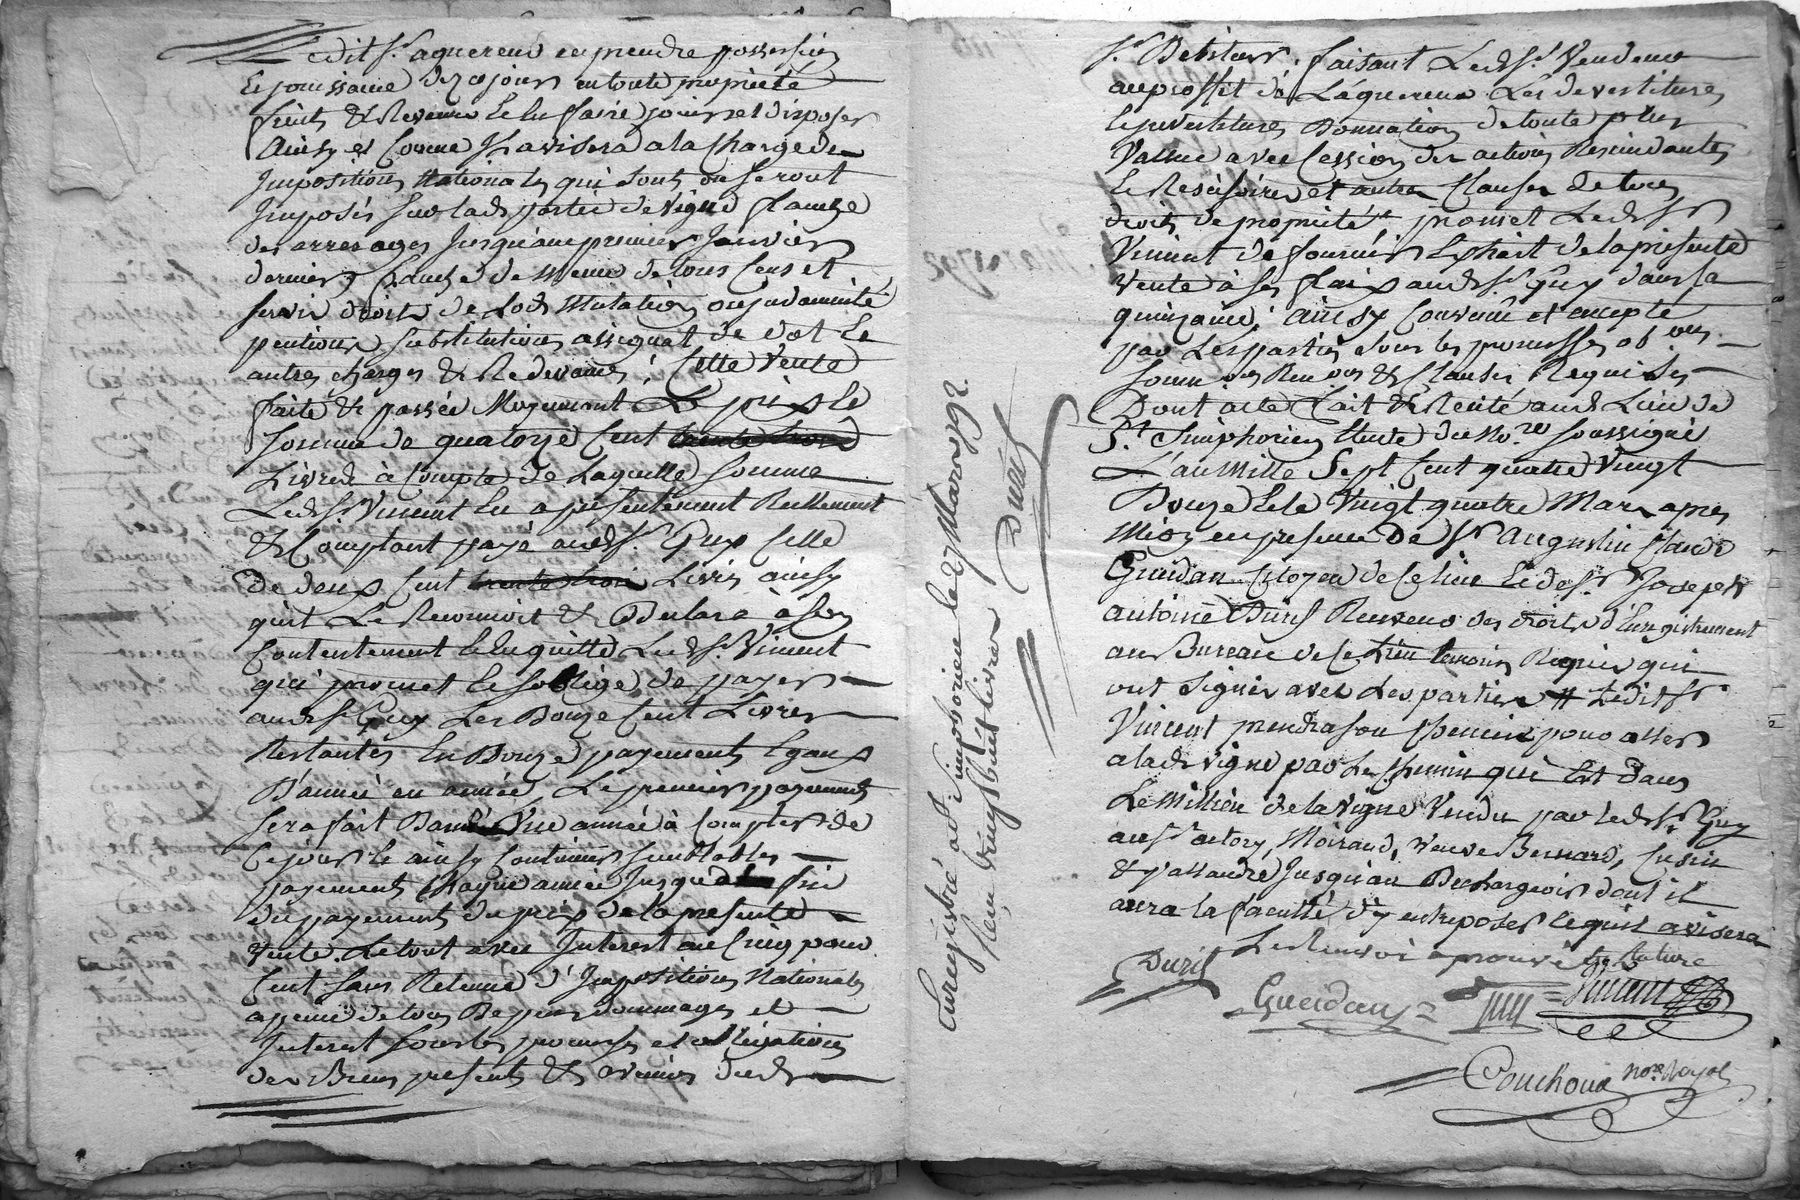 Ledit sr aquereur en prendre possession
et jouissance dez ce jour en toute proprieté
fruits & Revenu et lui faire jouir et disposer
ainsy et comme il avisera a la charge des
impositions nationales qui sont ou seront
imposés sur ladte partie de vigne franche
des arrerages jusqu'au premier janvier
dernier, franche de meme de tous cens et
servis droits de lods mutation
pentions substitution assignat de dot et
autres charges & Redevances, Cette vente
faite & passée moyenant Le prix et
somme de quatorze cent
Livres à Compte de Laquelle somme
Ledt sr Vincent en a presentement Reellement
& Comptant payé audt sr Guy celle
De deux cent Livres ainsy
qu'il Le Reconnoit & Declare à son
Contentement et en quitte Ledt sr Vincent
qui promet et s'oblige de payer
audt sr Guy Les Douze Cent Livres
Restantes En Douze payements Egaux
D'année en année Le premier payement
sera fait Dans une année à Compter de
Ce jour et ainsy continuer semblables
payements chaque année jusqu'a fin
du payement du prix de la presente
vente. Le tout avec Interest au Cinq pour
Cent sans Retenue d'Impositions Nationales
apeine de tous Depens dommages et
Interest sous les promesses et obligations
des Biens presents & avenirs dudt
sr Debiteur. faisant Ledt sr Vendeur
au proffit de Laquereur Les devestitures
et investitures Donnation de toute plus
Value avec Cession des actions Rescindantes
et Rescisoires et autres Clauses de tous
droits de proprieté, promet Ledt sr
Vincent de fournir Extrait de la presente
vente à ses fraix audt sr Guy dans la
quinzaine, ainsy convenu et accepté
par Les parties sous les promesses ob ons
soum ons Ren ons & Clauses Requises
Dont acte fait & Recité aud. Lieu de
St Simphorien Etude du nore soussigné
L'an Mille Sept Cent quatre Vingt
Douze et le Vingt quatre Mars apres
Midy en presence De sr augustin
Gueidan Citoyen de ce lieu et de sr Joseph
antoine Duris Receveur des droits d'Enregistrement
au Bureau de ce Lieu temoins Requis qui
ont Signés avec Les parties # Ledit sr
Vincent prendra son chemin pour aller
a ladte vigne par Le chemin qui Est dans
Le Millieu de la vigne Vendu par ledt sr Guy
aux srs actory, Moiraud, veuve Bernard,
& y attandre jusqu'au Dechargeoir dont il
aura la faculté d'y entreposer ce qu'il avisera
Le Renvoi aprouvé
Duris
Gueidan =
Vincent
Couchoud nore Royal
Enregistré a St Simphorien le 27 Mars 1792
Reçu vingt huit livres Duris